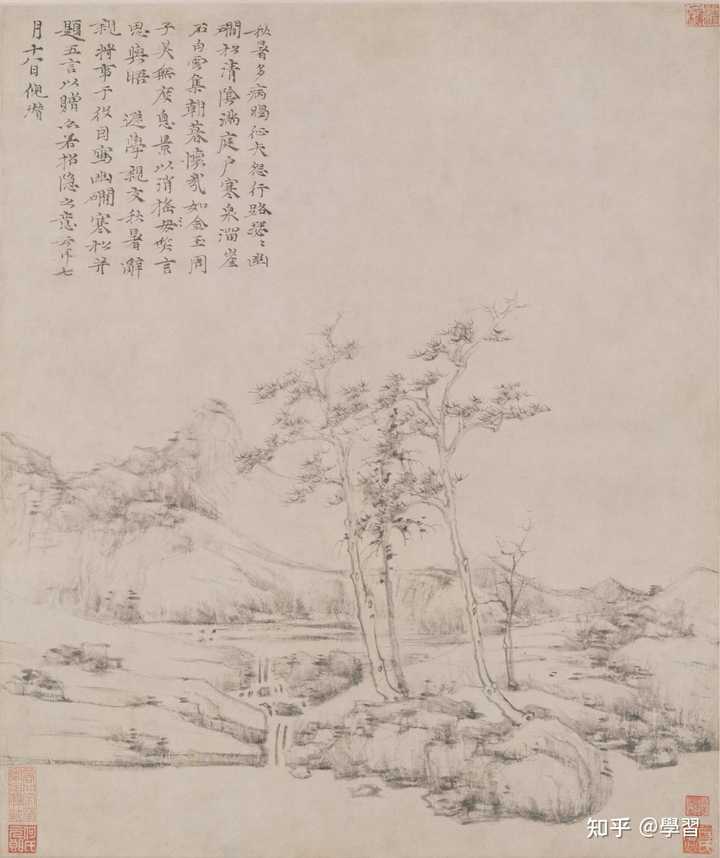 秋暑多病暍征夫怨行路瑟〻幽
澗松清陰滿庭户寒泉溜崖
石白雲集朝暮懷哉如金玉周
子美無度息景以消搖笑言
思與晤 遜學親友秋暑辭
親將事于役因寫幽澗寒松并
題五言以贈亦若招隱之意七
月十八日倪瓚
知乎 @學習